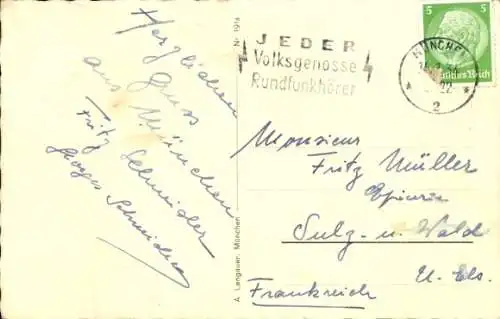 Herzlichen
Gruss
aus München
Fritz Schneider
Georges Schneider
Nr. 191a
A. Lengauer, München
JEDER
Volksgenosse
Rundfunkhörer
MÜNCHEN
22
2
5 5
Deutsches Reich
Monsieur
Fritz Müller
Epicerie
Sulz u. Wald
U. Els.
Frankreich